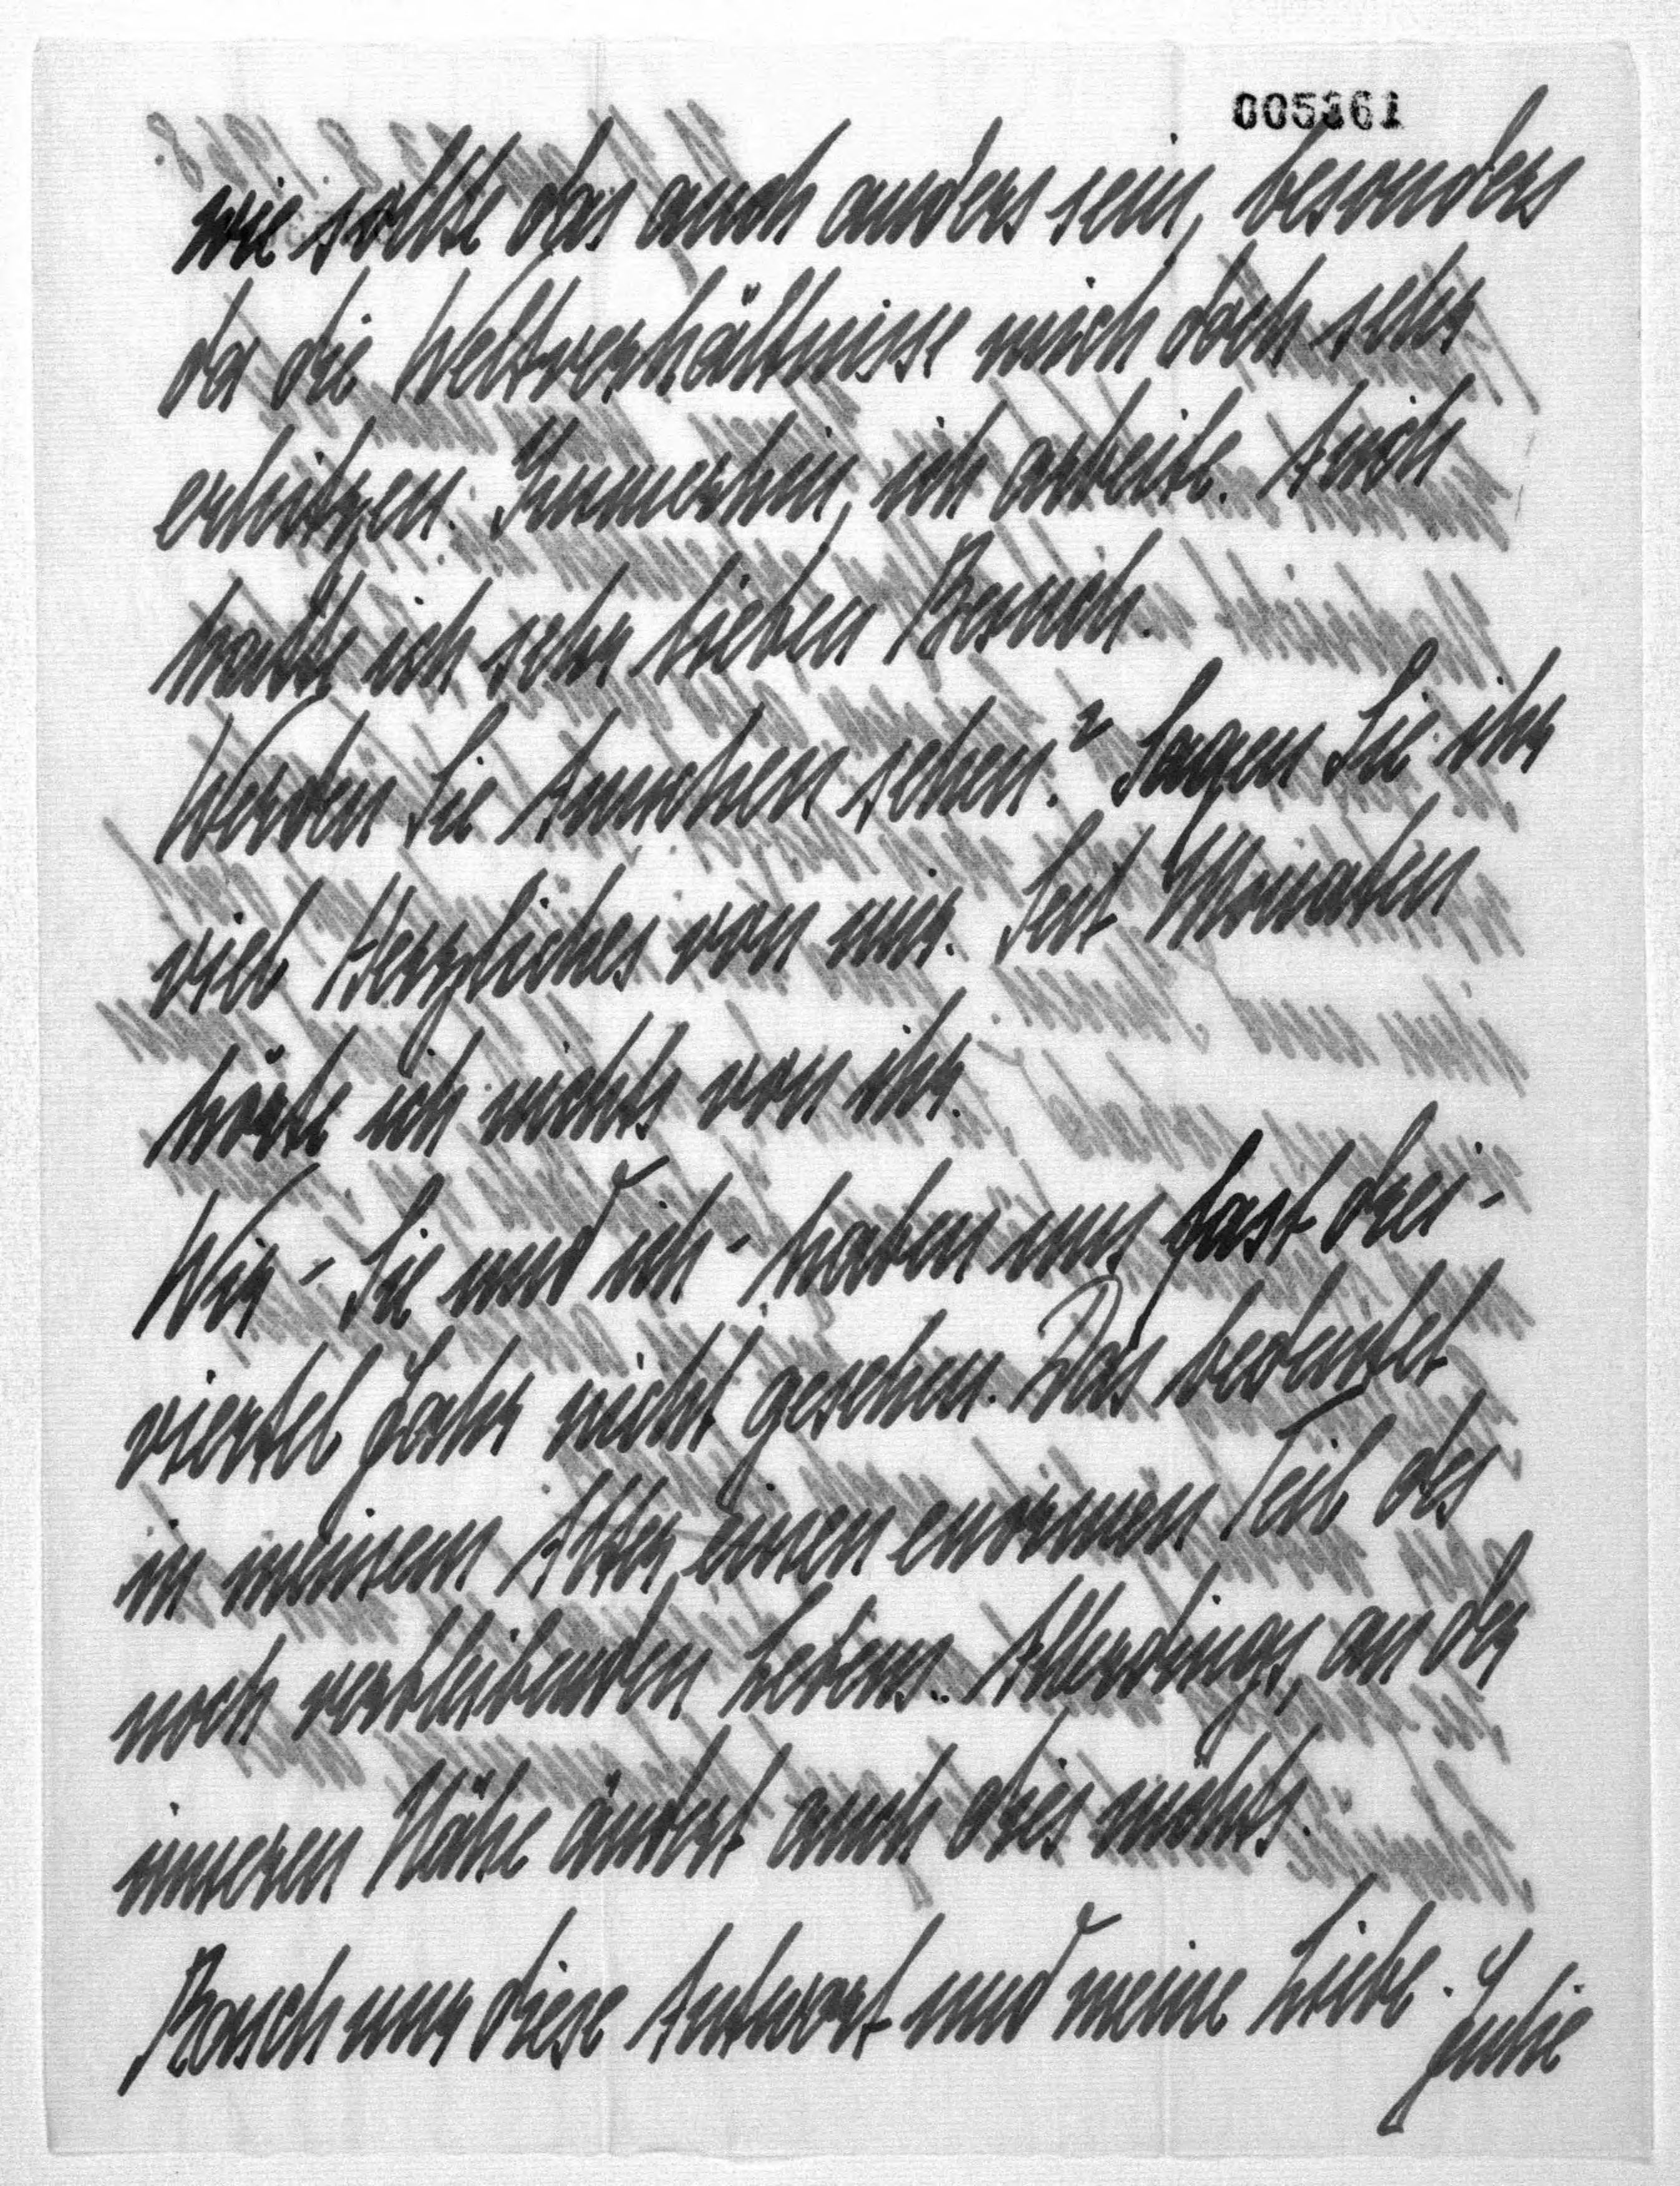 005361
wie sollte das auch anders sein, besonders
da die Weltverhältnisse mich doch sehr
erhitzen. Immerhin, ich arbeite. Auch
hatte ich sehr lieben Besuch.
Werden Sie Annchen sehen? Sagen Sie ihr
viel Herzliches von mir. Seit Monaten
hörte ich nichts von ihr.
Wir - Sie und ich - haben uns fast drei-
viertel Jahr nicht gesehen. Das bedeutet
in meinem Alter einen enormen Teil des
noch verbleibenden Lebens. Allerdings, an der
inneren Nähe ändert auch dies nichts.
Rasch nur diese Antwort und meine Liebe.
Julie